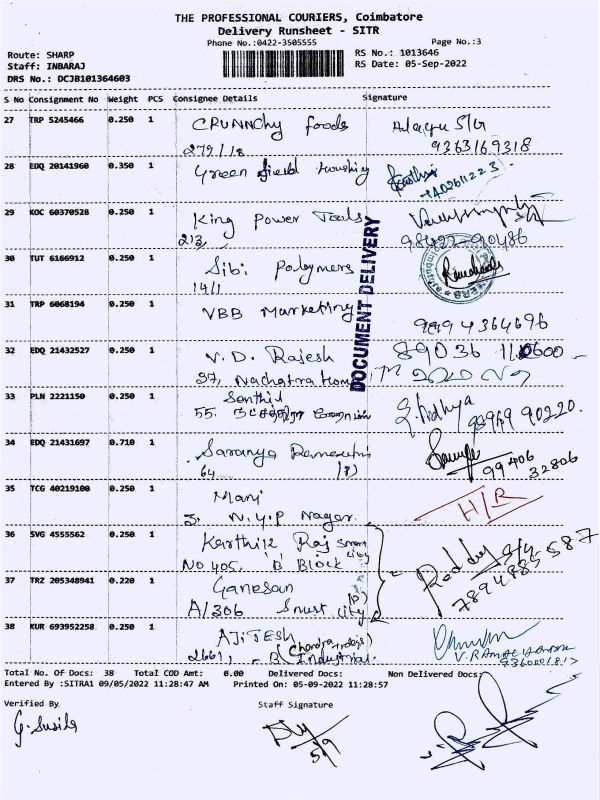 THE PROFESSIONAL COURIERS, Coimbatore
Delivery Runsheet - SITR
Phone No.:0422-3505555 Page No.:3
Route: SHARP RS No.: 1013646
Staff: INBARAJ RS Date: 05-Sep-2022
DRS No.: DCJB101364603
S No Consignment No Weight PCS Consignee Details Signature
27 TRP 5245466 0.250 1 CRUNNChy foods
279/18 9363169318
28 EDQ 20141960 0.350 1 Green field Housing
29 KOC 60370528 0.250 1 King Power Tools
213, 98422-90486
30 TUT 6166912 0.250 1 Sibi Polymers
14/1
DOCUMENT DELIVERY
31 TRP 6068194 0.250 1 VBB Marketing
9894364696
32 EDQ 21432527 0.250 1 V. D. Rajesh
37, Nachatra
33 PLN 2221150 0.250 1 Senthil
55. 90220
34 EDQ 21431697 0.710 1 Saranya
64 (P) 99406
32806
35 TCG 40219100 0.250 1 Mani H/R
3. N.Y.P Nagar.
36 SVG 4555562 0.250 1 Karthik Raj Smart City
NO 405, B Block Reddy S/G
7894885587
37 TRZ 205348941 0.220 1 Ganesan (P)
A/306 Smart City
38 KUR 693952258 0.250 1 AJITESH
2661, - B Industrial
Total No. Of Docs: 38 Total COD Amt: 0.00 Delivered Docs: Non Delivered Docs:
Entered By :SITRA1 09/05/2022 11:28:47 AM Printed On: 05-09-2022 11:28:57
Verified By Staff Signature
G. Susila
5/9